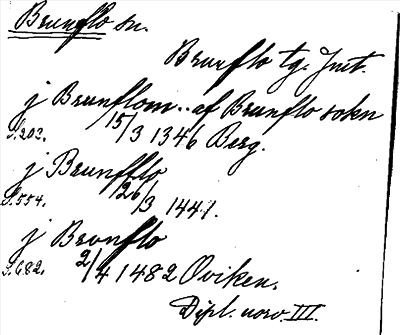 Brunflo sn.
Brunflo tg. Jmt.
j Brunflom.. af Brunflo sokn
S.202. 15/3 1346 Berg.
j Brunfflo
S.554. 26/3 1447.
j Brvnflo
S.682. 2/4 1482 Oviken.
Dipl. norv. III.